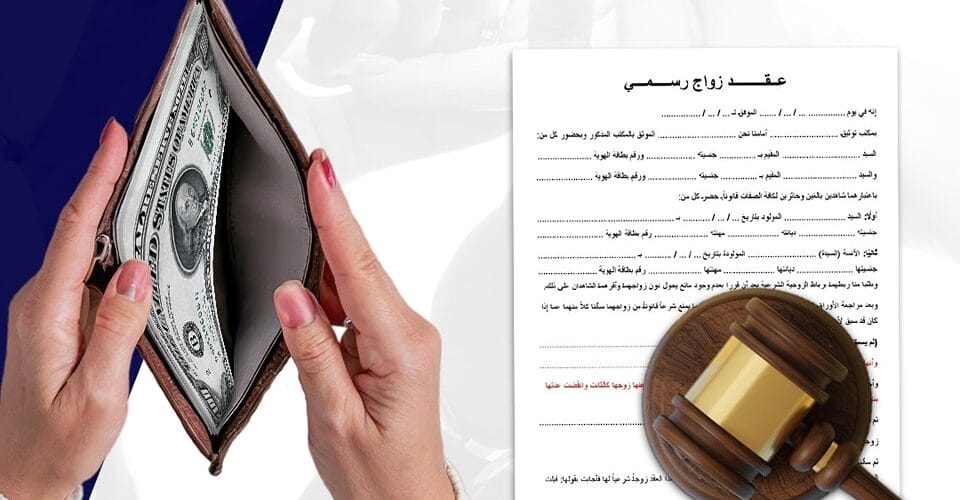 THE UNITED STATES OF AMERICA
عـقــــد زواج رســمـــي
إنه في يوم ............... ... / ... / ....... الموفق لـ ... / ... / ...............
بمكتب توثيق........................ أمامنا نحن ........................ الموثق بالمكتب المذكور وبحضور كل من:
السيد ........................ المقيم بـ ............ جنسيته ............... ورقم بطاقة الهوية ........................
والسيد ........................ المقيم بـ ............ جنسيته ............... ورقم بطاقة الهوية ........................
باعتبارهما شاهدين بالغين وحائزين لكافة الصفات قانوناً، حضر كل من:
أولاً: السيد ........................ المولود بتاريخ ... / ... / ............ بـ ........................
جنسيته ............... ديانته ............... مهنته ............... رقم بطاقة الهوية ........................
ثانياً: الآنسة (السيدة) ........................ المولودة بتاريخ ... / ... / ............ بـ ........................
جنسيتها ............... ديانتها ............... مهنتها ............... رقم بطاقة الهوية ........................
وطلبا منا ربطهما برباط الزوجية الشرعية بعد أن قررا بعدم وجود مانع يحول دون زواجهما وأقرهما الشاهدان على ذلك.
وبعد مراجعة يمنع شرعاً قانوناً من زواجهما سألنا كلاً منهما عما إذا
كان قد سبق
(لم
عنها زوجها كالثابت وانقضت عدتها
هذا العقد زوجاً شرعياً لها فأجابت بقولها: قبلت